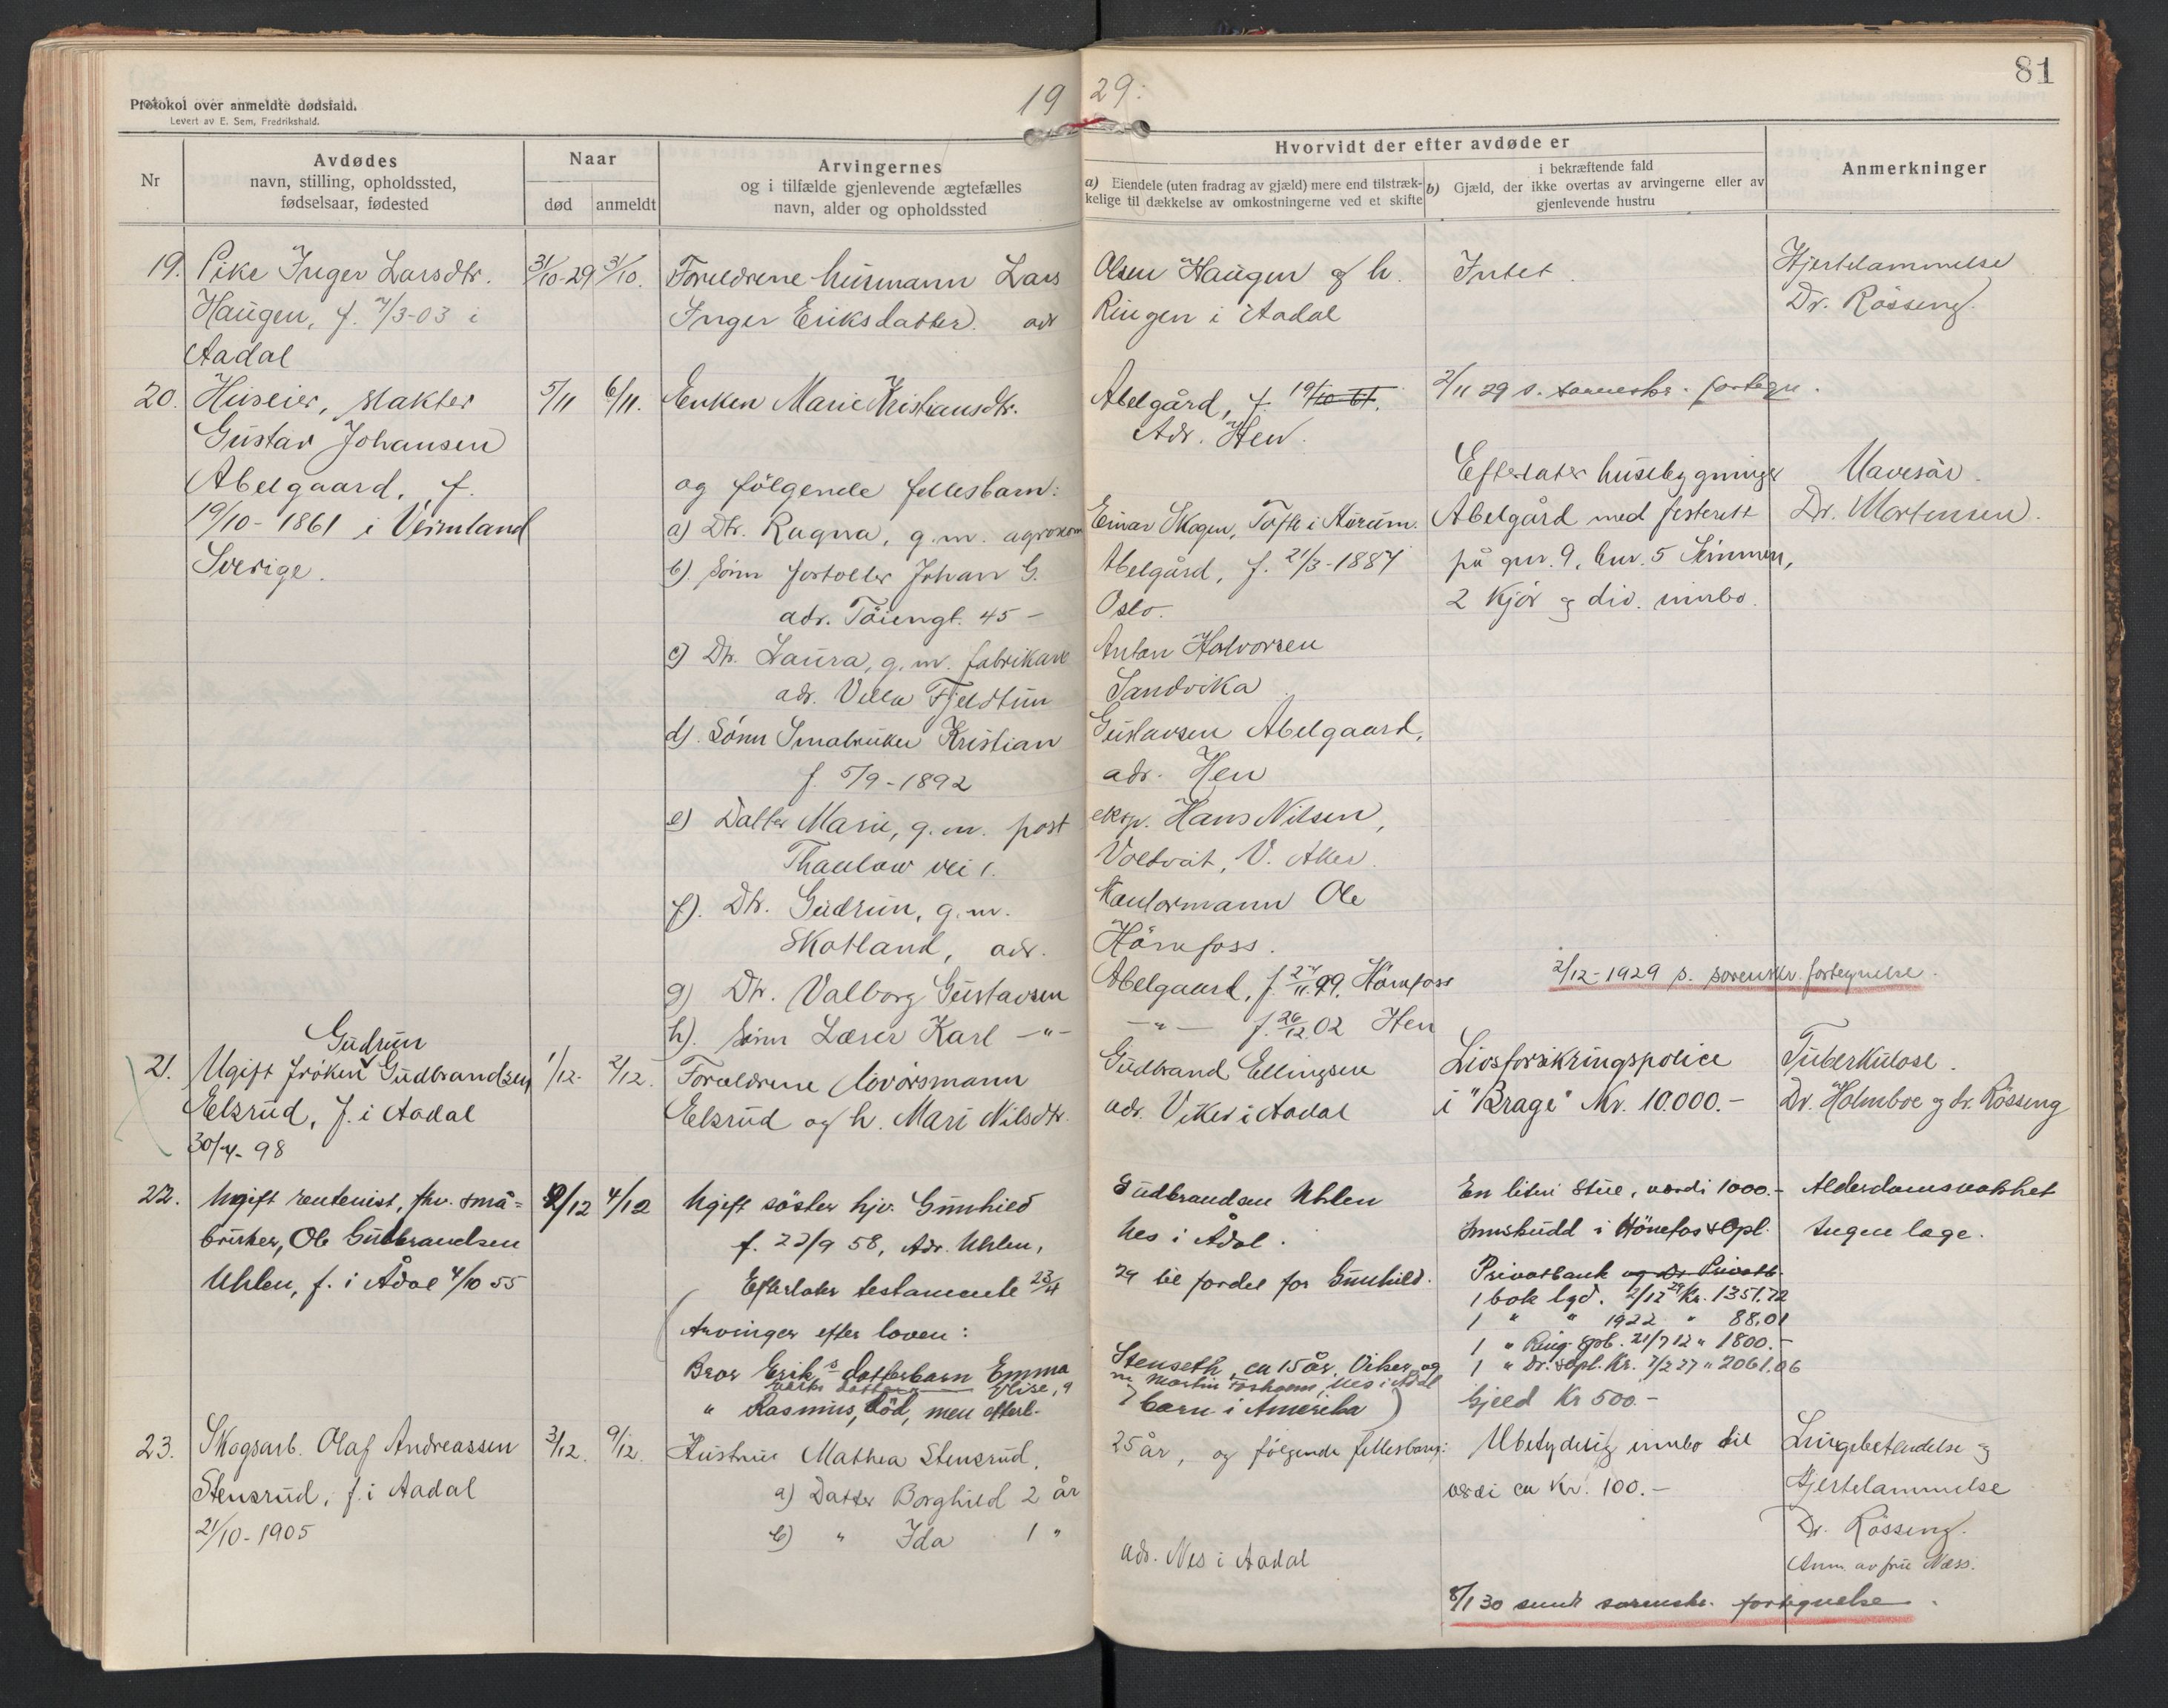 81
19 29:
Protokol over anmeldte dødsfald.
Levert av E. Sem, Fredrikshald.
Nr
Avdødes
navn, stilling, opholdssted,
fødselsaar, fødested
Naar
død anmeldt
Arvingernes
og i tilfælde gjenlevende ægtefælles
navn, alder og opholdssted
Hvorvidt der efter avdøde er
a) Eiendele (uten fradrag av gjæld) mere end tilstræk-
kelige til dækkelse av omkostningerne ved et skifte
i bekræftende fald
b) Gjæld, der ikke overtas av arvingerne eller av
gjenlevende hustru
Anmerkninger
19. Pike Inger Larsdtr. 31/10-29 31/10. Foreldrene husmann Lars Olsen Haugen og h. Intet. Hjertelammelse
Haugen, f. /3-03 i Inger Eriksdatter. adr Ringen i Aadal Dr. Rösseng.
Aadal
20. Huseier, slakter 5/11 6/11. Enken Marie Kristiansdtr. Abelgård, f. 19/10 61. 2/11 29 s. sorenskr. fortegn.
Gustav Johansen Adr. Hen.
Abelgaard, f. og følgende fellesbarn: Efterlater husebygninger Mavesår.
19/10-1861 i Vermland a) Dtr. Ragna, g.m. agronom Einar Skogen, Tofte i Hurum. Abelgård med festerett Dr. Mortensen.
Sverige. b). Sønn fortoller Johan G. Abelgård, f. 21/3-1887 på gnr. 9, bnr. 5 Semmen,
adr. Töiengt. 45 - Oslo. 2 kjør og div. innbo.
c) Dtr. Laura, g.m. fabrikant Anton Halvorsen
adr. Villa Fjeldtun Sandvika
d). Sønn Småbruker Kristian Gustavsen Abelgaard,
f. 5/9-1892 adr. Hen
e) Datter Marie, g.m. post eksp. Hans Nilsen,
Thaulow vei 1. Voldvat, V. Aker.
f). Dtr. Gudrun, g.m. Kontormann Ole
Skotland, adr. Hönefoss.
g) Dtr. Valborg Gustavsen Abelgaard, f. 27/11.99. Hönefoss 2/12-1929 s. sorenskr. fortegnelse.
h). Sønn Lærer Karl -"- -"- f. 26/12.02 Hen
21. Ugift frøken Gudrun Gudbrandsen 1/12. 2/12. Foreldrene Gudbrand Ellingsen Livsforsikringspolice Tuberkulose.
Elsrud, f. i Aadal Elsrud og h. Mari Nilsdtr. adr. Viker i Aadal i "Brage" Kr. 10.000.- Dr. Holmboe og dr. Rösseng
30/4-98
22. Ugift rentenist, fhv. små= 2/12 4/12 Ugift söster hjv. Gunhild Gudbrandsen Uhlen En liten stue, verdi 1000.- Alderdomssvakhet
bruker, Ole Gudbrandsen f. 22/9 58, Adr. Uhlen, Nes i Ådal. Innskudd i Hönefos & Opl. Ingen læge.
Uhlen, f. i Ådal 4/10 55 Efterlater testamente 23/4 29 til fordel for Gunhild. Privatbank og Dr. Privatb.
1 bok lyd. 2/12 29 Kr. 1351.72
Arvinger efter loven: 1 " " 1922 " 88.01
1 " Ring. Spb. 21/7 12 " 1800.-
Bror Erik's datterbarn Emma Stenseth, ca 15 år, Viker, og 1 " Dr. & Opl. Kr. 7/2 27 " 2061.06
Elise, Martin Forholm, Nes i Ådal
" Rasmus, död, men efterl. 7 barn i Amerika) Gjeld Kr 500.-
23. Skogsarb. Olaf Andreassen 3/12. 9/12. Hustrue Mathea Stensrud, 25 år, og følgende fellesbarn: Ubetydelig innbo til Lungebetendelse og
Stensrud, f. i Aadal a) Datter Borghild 2 år verdi ca Kr. 100.- Hjertelammelse
21/10-1905 b) " Ida 1 " Dr. Rösseng.
adr. Nes i Aadal Anm. av frue Næss.
8/1 30 sendt sorenskr. fortegnelse.